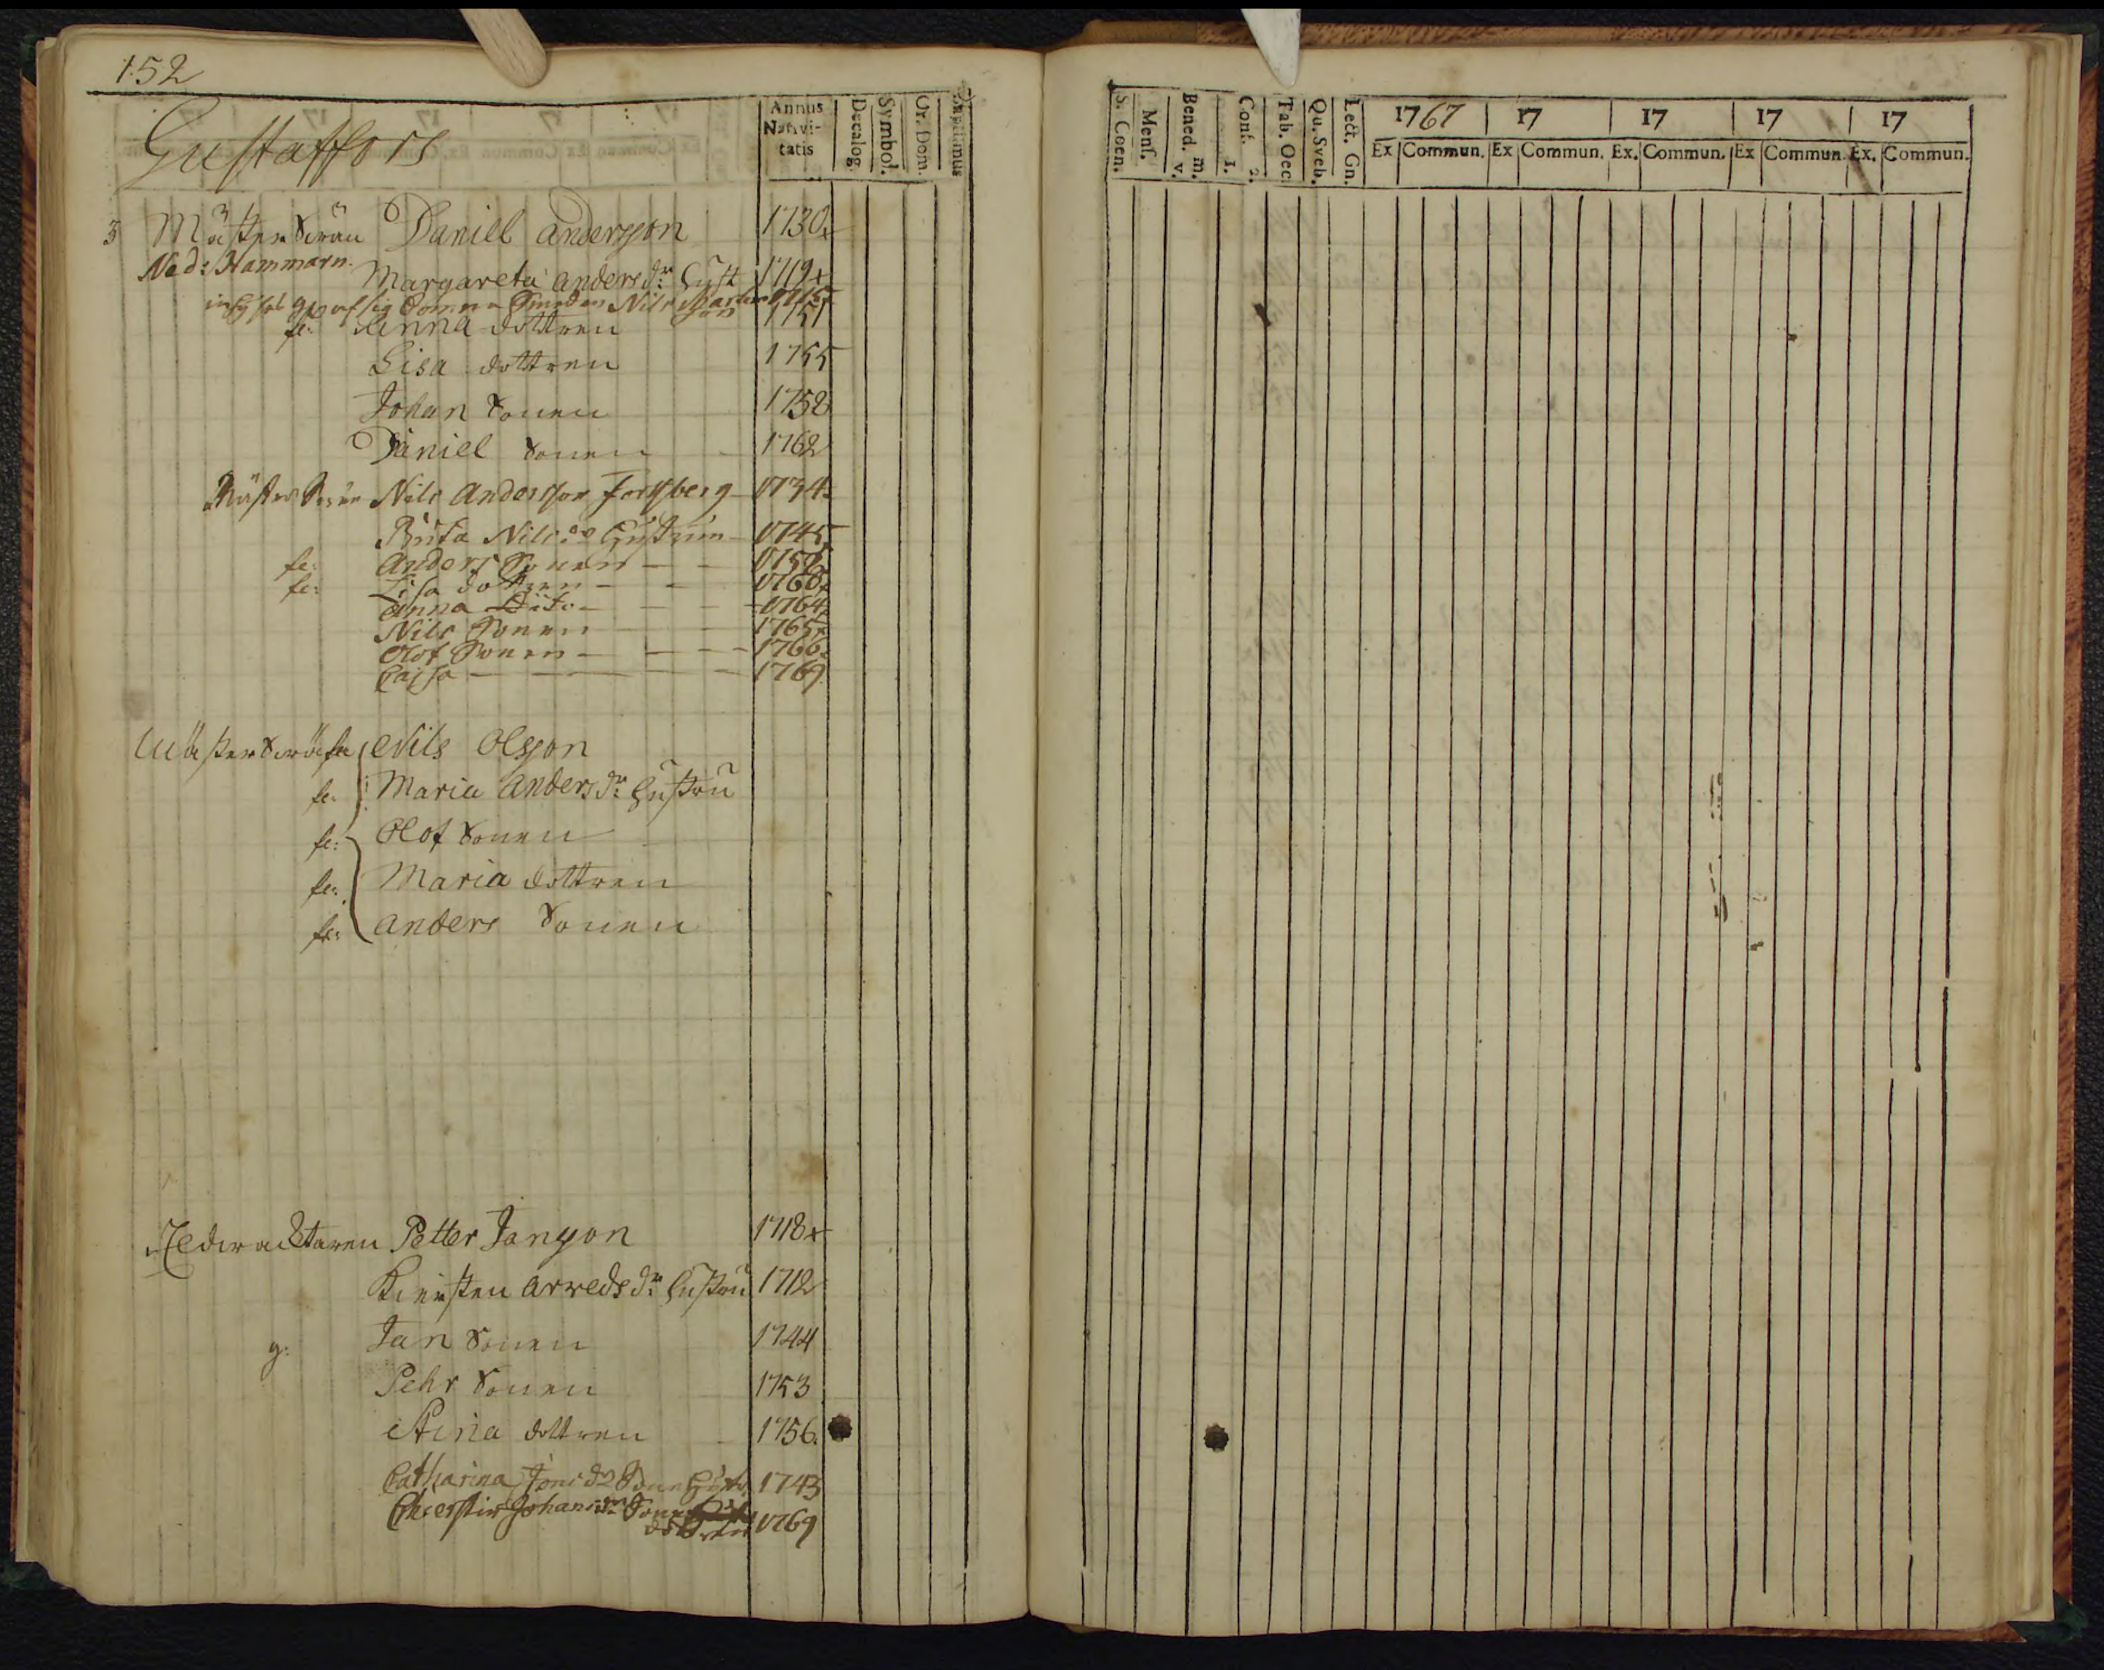 152
Gustaffors
Annus Nativi-tatis
Decalog.
Symbol.
Or. Dom.
Baptismus
3 Mäster Swän Daniel Andersson 1730.
Ned: Hammarn.
Margareta Anders dr: Hust 1719
Nils 
fe: Anna dottren 1751
Lisa dottren 1755
Johan Sonen 1758
Daniel Sonen 1762
Nils Andersson Forssberg 1734.
Brita Nils dr Hustrun 1745.
fe: Anders Sonen
fe: Lisa dottren
Anna Dito 1764
Nils Sonen 1765
Olof Sonen 1766.
Cajsa 1769
Nils Olsson
fe: Maria Anders dr: Hustru
fe: Olof Sonen
fe: Maria dottren
fe: Anders Sonen
Petter Janson 1718
Kiersten Arweds dr: Hustru 1712
g: Jan Sonen 1744
Pehr Sonen 1753
Stina dottren 1756.
Catharina Jons dr Sone Hustr. 1743
Cherstin Johans dr: Sone
dottren 1769
S. Coen.
Mens.
Bened. m. v.
Conf. 1. 2.
Tab. Oec.
Qu. Sveb.
Lect. Gn.
1767 17 17 17 17
Ex Commun. Ex Commun. Ex. Commun. Ex Commun. Ex. Commun.